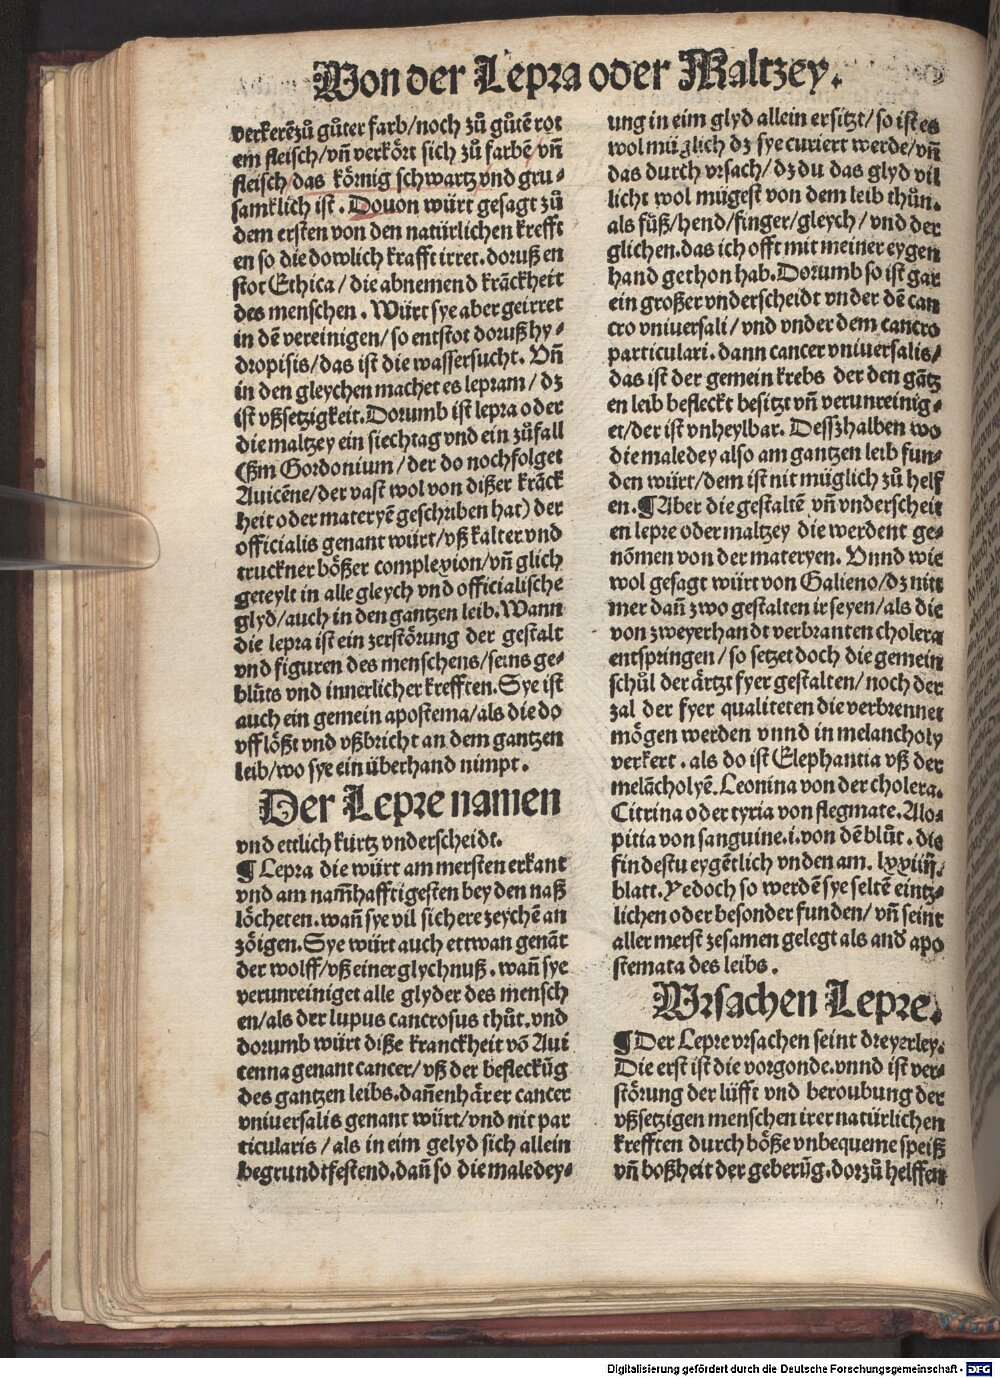 Von der Lepra oder Maltzey.
verkerẽ zů gůter farb/noch zů gůtẽ rot
em fleisch/vñ verkört sich zů farbẽ/vñ
fleisch/das körnig schwartz vnd gru-
samklich ist. Douon würt gesagt zů
dem ersten von den natürlichen krefft
en so die dowlich krafft irret. doruß en
stot Ethica/die abnemend krãckheit
des menschen. Würt sye aber geirret
in dẽ vereinigen/so entstot doruß hy-
dropisis/das ist die wassersucht. Vñ
in den gleychen machet es lepram/dz
ist vßsetzigkeit. Dorumb ist lepra oder
die maltzey ein siechtag vnd ein zůfall
(ßm Gordonium/der do nochfolget
Auicẽne/der vast wol von dißer krãck
heit oder materyẽ geschriben hat) der
officialis genant würt/vß kalter vnd
truckner bößer complexion/vñ glich
geteylt in alle gleych vnd officialische
glyd/auch in den gantzen leib. Wann
die lepra ist ein zerstörung der gestalt
vnd figuren des menschens/seins ge-
blůts vnd innerlicher krefften. Sye ist
auch ein gemein apostema/als die do
vfflößt vnd vßbricht an dem gantzen
leib/wo sye ein überhand nimpt.
Der Lepre namen
vnd ettlich kurtz vnderscheidt.
¶ Lepra die würt am mersten erkant
vnd am nam̃hafftigesten bey den naß
löcheten. wañ sye vil sichere zeychẽ an
zöigen. Sye würt auch ettwan genãt
der wolff/vß einer glychnuß. wañ sye
verunreiniget alle glyder des mensch
en/als der lupus cancrosus thůt. vnd
dorumb würt diße kranckheit võ Aui
cenna genant cancer/vß der befleckũg
des gantzen leibs. dañenhär er cancer
vniuersalis genant würt/vnd nit par
ticularis/als in eim gelyd sich allein
begrundtfestend. dañ so die maledey-
ung in eim glyd allein ersitzt/so ist es
wol müglich dz sye curiert werde/vñ
das durch vrsach/dz du das glyd vil
licht wol mügest von dem leib thůn.
als fůß/hend/finger/gleych/vnd der
glichen. das ich offt mit meiner eygen
hand gethon hab. Dorumb so ist gar
ein großer vnderscheidt vnder dẽ can
cro vniuersali/vnd vnder dem cancro
particulari. dann cancer vniuersalis/
das ist der gemein krebs der den gãtz
en leib befleckt besitzt vñ verunreinig-
et/der ist vnheylbar. Deßzhalben wo
die maledey also am gantzen leib fun-
den würt/dem ist nit müglich zů helff
en. ¶ Aber die gestaltẽ vñ vnderscheit
en lepre oder maltzey die werdent ge-
nõmen von der materyen. Vnnd wie
wol gesagt würt von Galieno/dz nit
mer dañ zwo gestalten ir seyen/als die
von zweyerhandt verbranten cholera
entspringen/so setzet doch die gemein
schůl der ärtzt fyer gestalten/noch der
zal der fyer qualiteten die verbrennet
mögen werden vnnd in melancholy
verkert. als do ist Elephantia vß der
melãcholyẽ. Leonina von der cholera.
Citrina oder tyria von flegmate. Alo-
pitia von sanguine.i.von dẽ blůt. die
findestu eygẽtlich vnden am. lxxiiij.
blatt. Yedoch so werdẽ sye seltẽ eintz-
lichen oder besonder funden/vñ seint
aller merst zesamen gelegt als and apo
stemata des leibs.
Vrsachen Lepre.
¶ Der Lepre vrsachen seint dreyerley.
Die erst ist die vorgonde. vnnd ist ver-
störung der lüfft vnd beroubung der
vßsetzigen menschen irer natürlichen
krefften durch böße vnbequeme speiß
vñ boßheit der geberũg. dorzů helffen
Digitalisierung gefördert durch die Deutsche Forschungsgemeinschaft - DFG